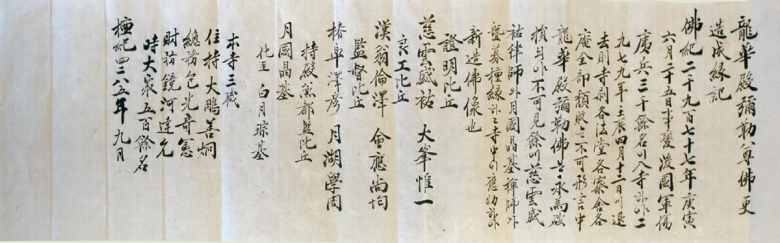 龍華殿彌勒尊佛更
造成緣記
佛紀二千九百七十七年庚寅
六月二十五日事變後國軍傷
廣兵三千餘名이入寺하야二
九七九年壬辰四月十二日에退
去則寺刹各法堂各寮舍各
庵全部頹敗는不可形言中
龍華殿彌勒佛은永爲破
損되야不可見餘에慈雲盛
祐律師와月國晶基禪師가
發募種緣하고寺中에應功하야
新造佛像也
證明比丘
慈雲盛祐 大峯惟一
良工比丘
漢翁倫澤 會應尚均
監督比丘
椿皐澤彦 月湖學周
持殿兼都監比丘
月國晶基
化主 白月琮基
本寺三職
住持 大鵬善炯
總務 包光奇憲
財務 鏡河達允
時大衆五百餘名
檀紀四二八五年 九月